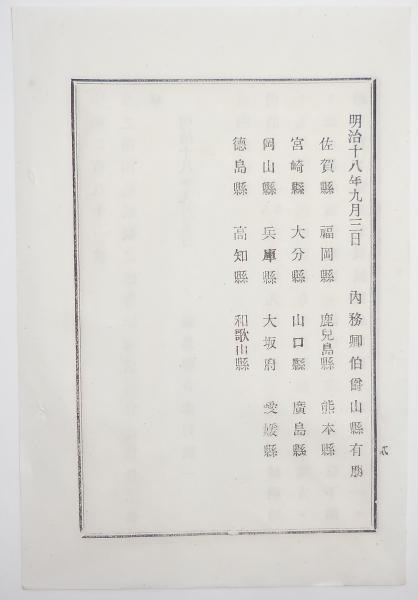 明治十八年九月三日　内務卿伯爵山縣有朋
佐賀縣　福岡縣　鹿兒島縣　熊本縣
宮崎縣　大分縣　山口縣　廣島縣
岡山縣　兵庫縣　大坂府　愛媛縣
德島縣　高知縣　和歌山縣
貳